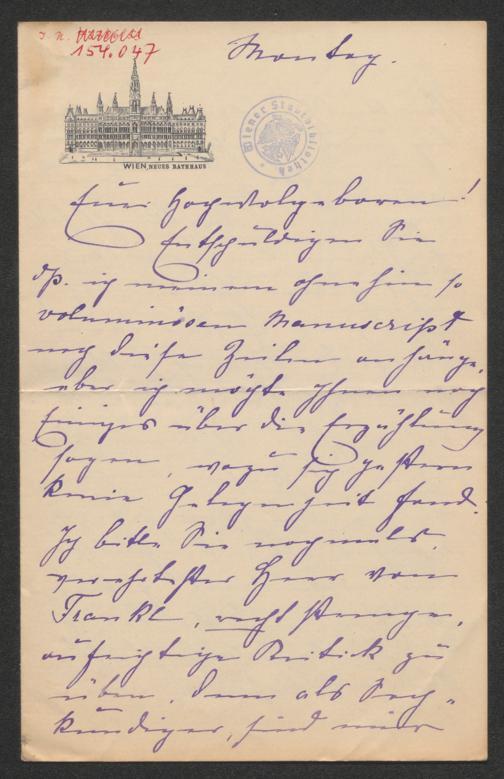 J. N.
154.047
Montag.
WIEN, NEUES RATHHAUS
Wiener Stadtbibliothek
Euer Hochwolgeboren!
Entschuldigen Sie
dß. ich meinem ohnehin so
voluminösen Manuscript
noch diese Zeilen anhänge,
aber ich möchte Ihnen noch
Einiges über die Erzählung
sagen, wozu sich gestern
keine Gelegenheit fand.
Ich bitte Sie nochmals,
verehrtester Herr von
Frankl, recht strenge,
aufrichtige Kritik zu
üben, denn als Sach-
kundiger, sind mir